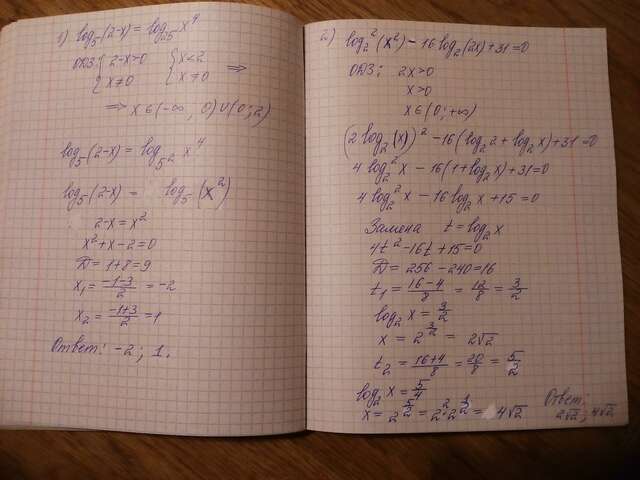 1) log₅(2-x) = log₂₅ x⁴
ОДЗ: { 2-x>0 { x<2
{ x≠0 { x≠0 ⇒
⇒ x∈(-∞; 0)∪(0; 2)
log₅(2-x) = log₅² x⁴
log₅(2-x) = log₅(x²)
2-x = x²
x²+x-2=0
Д = 1+8=9
x₁ = (-1-3)/2 = -2
x₂ = (-1+3)/2 = 1
Ответ: -2; 1.
2) log₂²(x²) - 16 log₂(2x) + 31 = 0
ОДЗ: 2x>0
x>0
x∈(0; +∞)
(2log₂(x))² - 16(log₂2 + log₂x) + 31 = 0
4log₂²x - 16(1+log₂x) + 31 = 0
4log₂²x - 16log₂x + 15 = 0
Замена t = log₂x
4t²-16t+15=0
Д = 256 - 240 = 16
t₁ = (16-4)/8 = 12/8 = 3/2
log₂x = 3/2
x = 2^(3/2) = 2√2
t₂ = (16+4)/8 = 20/8 = 5/2
log₂x = 5/4
x = 2^(5/2) = 2²·2^(1/2) = 4√2
Ответ:
2√2; 4√2.